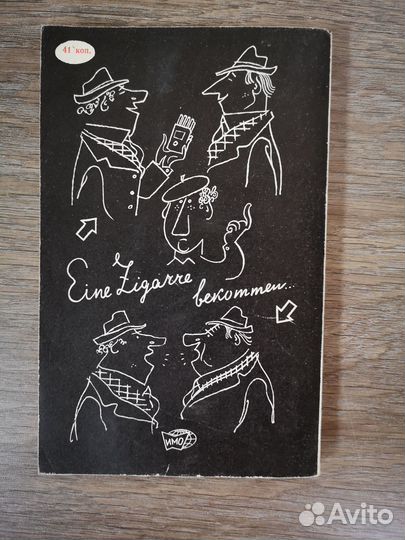 41 коп.
Eine Zigarre
bekommen...
ИМО
Avito